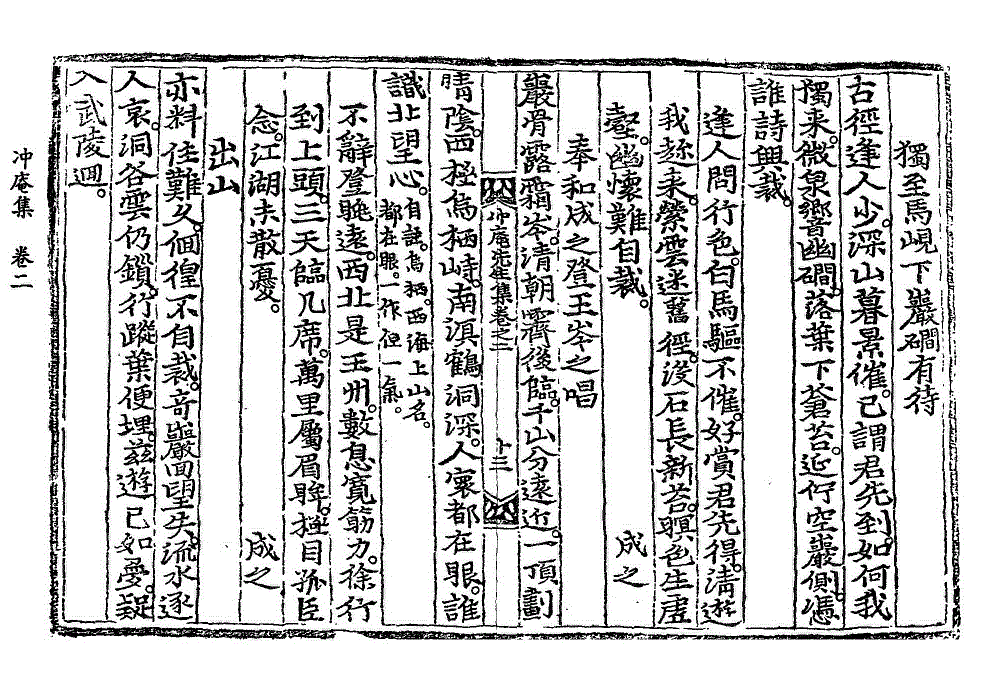 獨至馬峴下巖磵有待
古徑逢人少。深山暮景催。已謂君先到。如何我
獨來。微泉響幽磵。落葉下蒼苔。近佇空巖側。憑
誰詩興裁。
逢人問行色。白馬驅不催。好賞君先得。淸遊
我趂來。縈雲迷舊徑。沒石長新苔。暝色生虛
壑。幽懷難自裁。
成之
奉和成之登王岑之唱
巖骨露霜岑。淸朝霽後臨。千山分遠近。一頂劃
晴陰。西極爲栖峙。南溟鶴洞深。人寰都在眼。誰
識北望心。自註。爲栖。西海上山名。都在眼。一作但一氣。
不辭登眺遠。西北是王州。數息寬筋力。徐行
到上頭。三天臨几席。萬里屬眉眸。極目孤臣
念。江湖未散憂。
成之
出山
亦料佳難久。徊徨不自裁。奇巖回望失。流水逐
人哀。洞谷雲仍鎖。行蹤葉便埋。玆遊已如夢。疑
入武陵迴。
冲庵先生集卷之二
十三
冲庵集 卷二